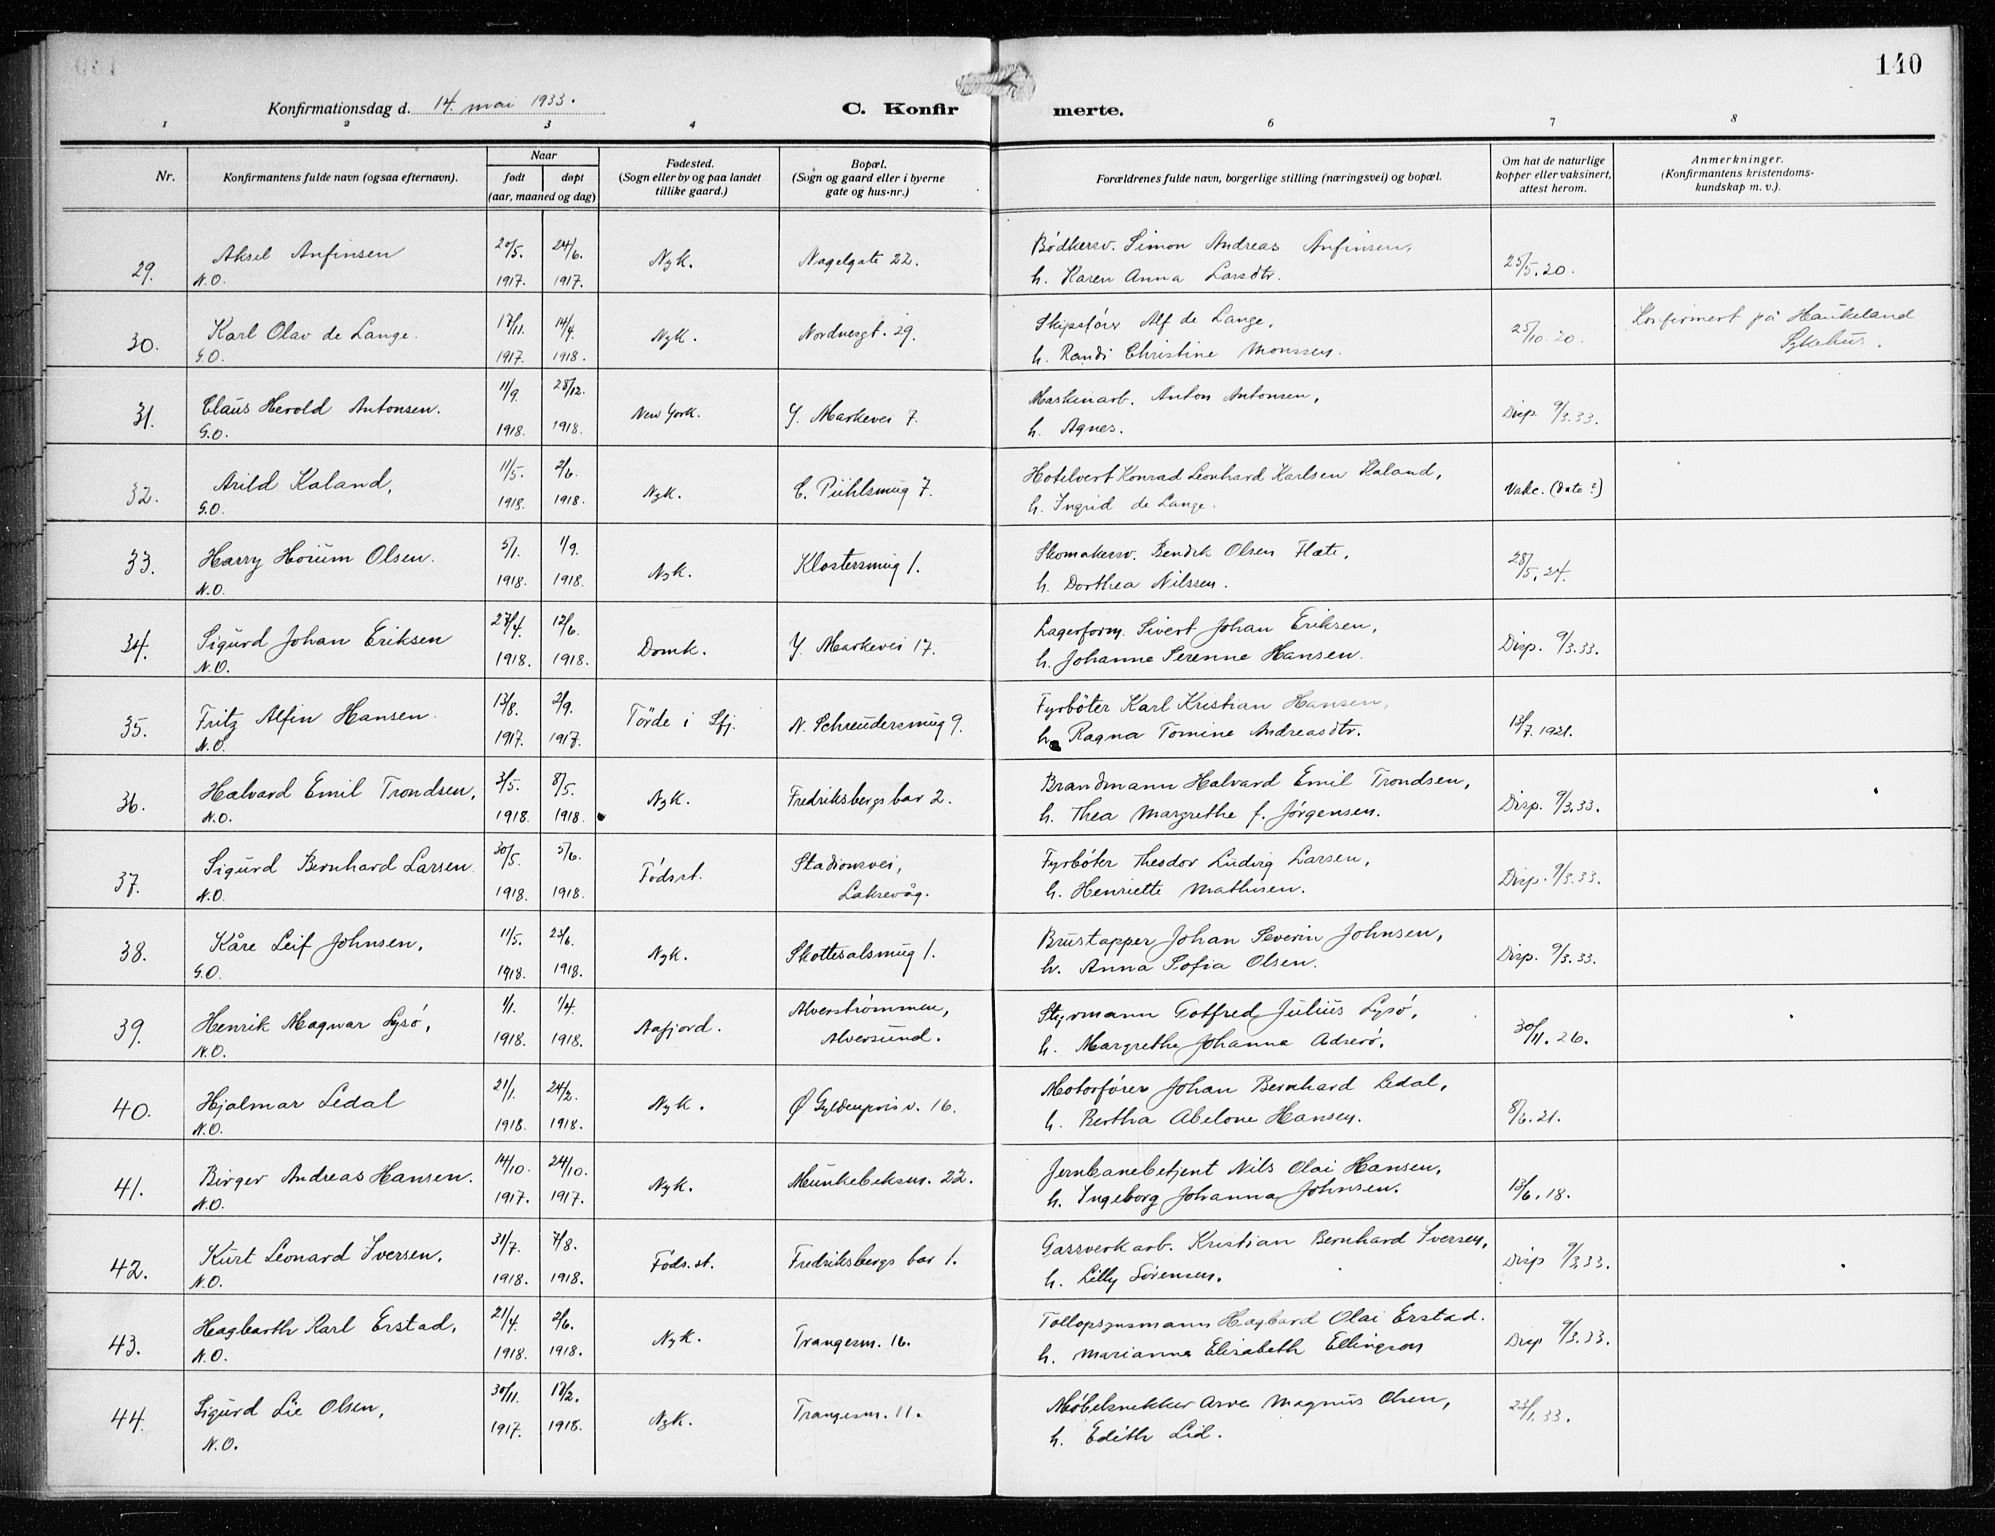 140
Konfirmationsdag d. 14. mai 1933.
C. Konfir merte.
1 2 3 4 6 7 8
Nr.
Konfirmantens fulde navn (ogsaa efternavn).
Naar
født døpt
(aar, maaned og dag)
Fødested.
(Sogn eller by og paa landet
tillike gaard.)
Bopæl.
(Sogn og gaard eller i byerne
gate og hus-nr.)
Forældrenes fulde navn, borgerlige stilling (næringsvei) og bopæl.
Om hat de naturlige
kopper eller vaksinert,
attest herom.
Anmerkninger.
(Konfirmantens kristendoms-
kundskap m. v.).
29. Aksel Anfinsen 20/5. 24/6. Nyk. Nagelgate 22. Bødkersv. Simon Andreas Anfinsen,
N.O. 1917. 1917. h. Karen Anna Larsdtr. 25/5.20.
30. Karl Olav de Lange. 17/11. 14/4. Nyk. Nordnesgt. 29. Skipsfører Alf de Lange, 25/10.20. Konfirmert på Haukeland
G.O. 1917. 1918. h. Randi Christine Monssen. Sykehus.
31. Claus Herold Antonsen. 11/9. 28/12. New York. Y. Markevei 7. Maskinarb. Anton Antonsen, Disp. 9/3.33.
G.O. 1918. 1918. h. Agnes.
32. Arild Kaland, 11/5. 2/6. Nyk. C. Pühlsmug 7. Hotelvert Konrad Leonhard Karlsen Kaland, Vakc. (Dato?)
G.O. 1918. 1918. h. Ingrid de Lange.
33. Harry Hoium Olsen. 5/1. 1/9. Nyk. Klostersmug 1. Skomakersv. Bendik Olsen Flate, 28/5.24.
N.O. 1918. 1918. h. Dorthea Nilssen.
34. Sigurd Johan Eriksen 27/4. 12/6. Domk. Y. Markevei 17. Lagerform. Sivert Johan Eriksen, Disp. 9/3.33.
N.O. 1918. 1918. h. Johanne Serenne Hansen.
35. Fritz Alfin Hansen. 13/8. 2/9. Førde i Sfj. N. Schreudersmug 9. Fyrbøter Karl Kristian Hansen, 13/7.1921.
N.O. 1917. 1917. h. Ragna Tomine Andreasdtr.
36. Halvard Emil Trondsen, 3/5. 8/5. Nyk. Fredriksbergs bar 2. Brandmann Halvard Emil Trondsen, Disp. 9/3.33.
N.O. 1918. 1918. h. Thea Margrethe f. Jørgensen.
37. Sigurd Bernhard Larsen. 30/5. 5/6. Føds.st. Stadionsvei, Fyrbøter Theodor Ludvig Larsen, Disp. 9/3.33.
N.O. 1918. 1918. Laksevåg. h. Henriette Mathisen.
38. Kåre Leif Johnsen, 11/5. 23/6. Nyk. Skottesalsmug 1. Brustapper Johan Severin Johnsen, Disp. 9/3.33.
G.O. 1918. 1918. h. Anna Sofia Olsen.
39. Henrik Magnar Lysø, 1/1. 1/4. Aafjord. Alverstrømmen, Styrmann Gotfred Julius Lysø, 30/11.26.
N.O. 1918. 1918. Alversund. h. Margrethe Johanna Adserø.
40. Hjalmar Ledal 21/1. 24/2. Nyk. Ø Gyldenprisv. 16. Motorfører Johan Bernhard Ledal, 8/6.21.
N.O. 1918. 1918. h. Bertha Abelone Hansen.
41. Birger Andreas Hansen. 14/10. 24/10. Nyk. Munkebeksm. 22. Jernbanebetjent Nils Olai Hansen, 13/6.18.
N.O. 1917. 1917. h. Ingeborg Johanna Johnsen.
42. Kurt Leonard Iversen, 31/7. 7/8. Føds.st. Fredriksbergs bar 1. Gassverkarb. Kristian Bernhard Iversen, Disp 9/3.33.
N.O. 1918. 1918. h. Lilly Sørensen.
43. Hagbarth Karl Erstad, 21/4. 2/6. Nyk. Trangesm. 16. Tollopsynsmann Hagbard Olai Erstad. Disp 9/3.33.
N.O. 1918. 1918. h. Marianna Elisabeth Ellingsen
44. Sigurd Lie Olsen, 30/11. 17/2. Nyk. Trangesm. 11. Møbelsnekker Arve Magnus Olsen, 23/1.33.
N.O. 1917. 1918. h. Edith Lid.